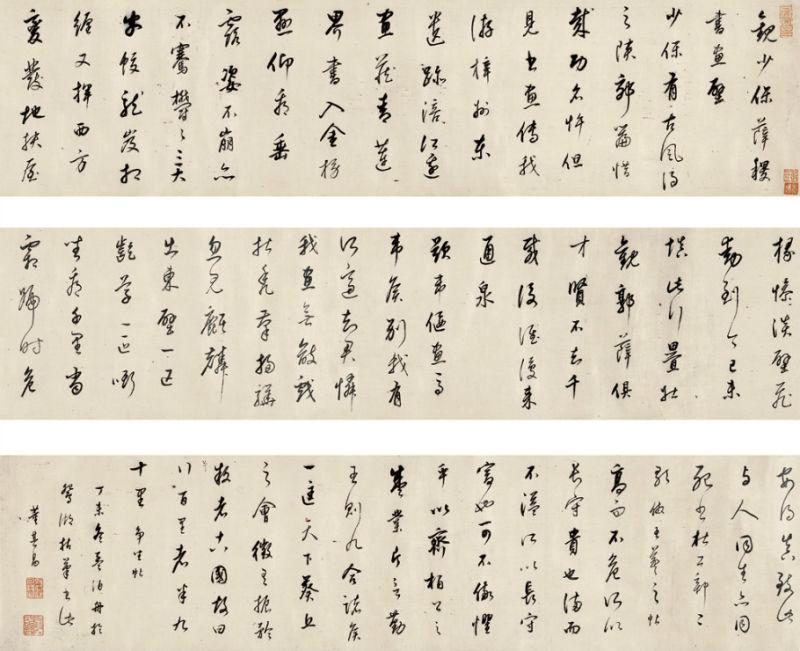 觀少保薛稷
書畫壁
少保有古風得
之陝郊篇惜
哉功名忤但
見書畫傳我
游梓州東
遺跡涪江邊
畫藏青蓮
界書入金榜
懸仰看垂
露姿不崩亦
不騫鬱鬱三大
字蛟龍岌相
纏又揮西方
變發地扶屋
椽慘淡壁飛
動到今色未
填此行疊壯
觀郭薛俱
才賢不知千
載後誰復來
通泉
題韋偃畫馬
韋侯別我有
所適知君憐
我畫無敵戲
拈禿筆掃驊
忽見麒麟
出東壁一匹
齕草一匹嘶
坐看千里當
霜蹄時危
安得真致此
與人同生亦同
死書杜工部二
歌倣王羲之帖
高而不危所以
長守貴也滿而
不溢所以長守
富也可不儆懼
乎以齊桓公之
盛業片言勤
王則九合諸侯
一匡天下葵丘
之會微有振矜
叛者國故曰
行百里者半九
十里爭坐帖
丁未冬暮泊舟於
鴛湖拈筆書此
董其昌